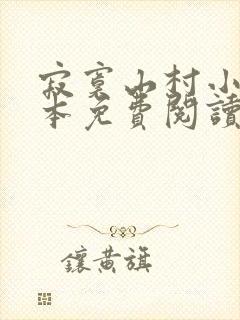 寂寞山村小
本免費閱讀
鑲黃旗